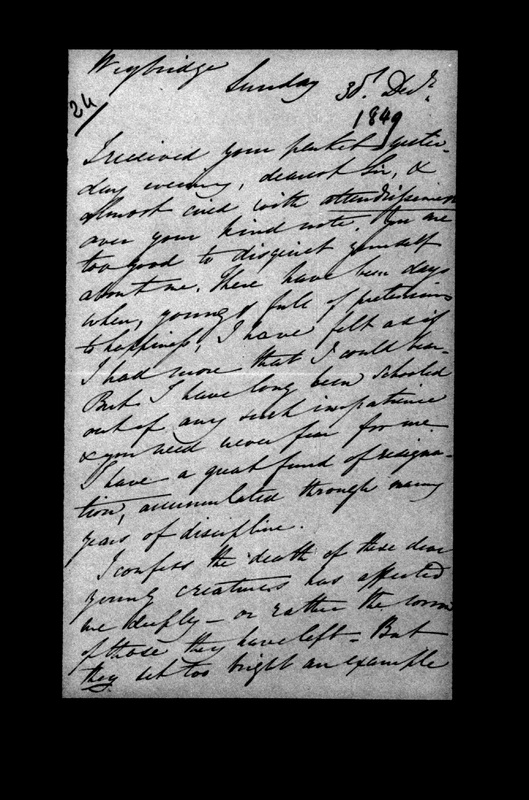 Weybridge
Sunday 30th Decr.
24
1849
I received your packet yester-
day evening, dearest Sir, &
almost cried with attendrissement
over your kind note. You are
too good to disquiet yourself
about me. There have been days
when, young & full of pretensions
to happiness, I have felt as if
I had more that I could bear.
But I have long been schooled
out of any such impatience
& you need never fear for me.
I have a great fund of resigna-
tion, accumulated through many
years of discipline.
I confess the death of these dear
young creatures has affected
me deeply — or rather the sorrow
of those they have left — But
they set too bright an example